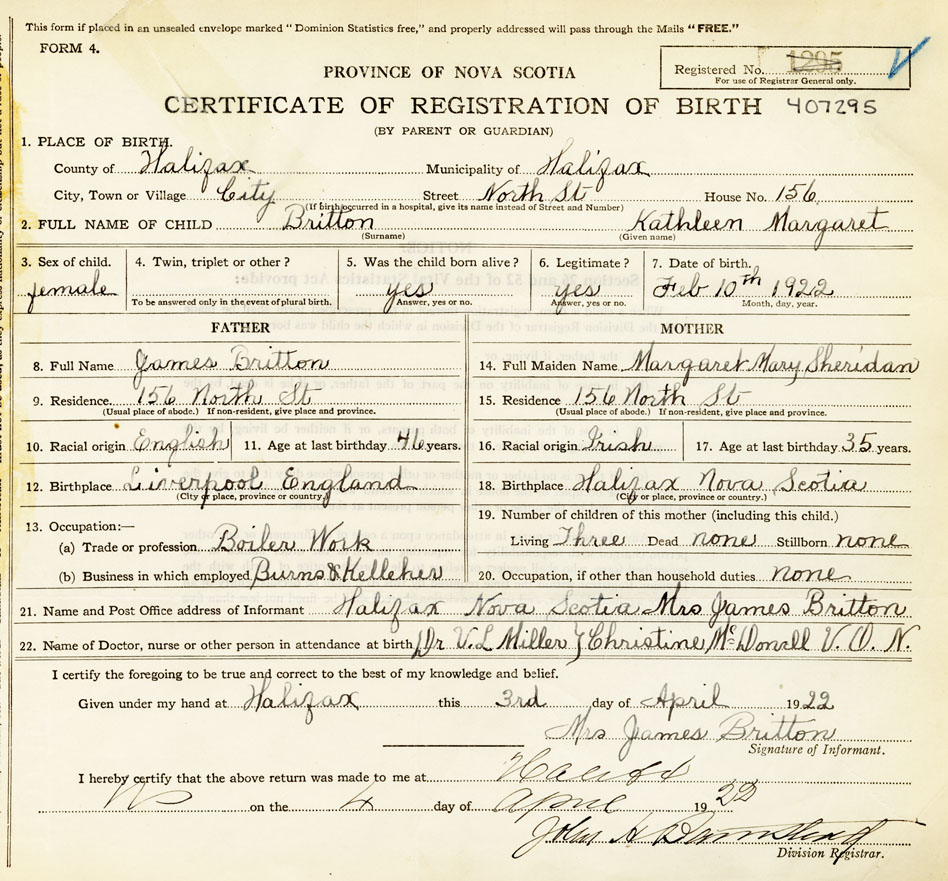 This form if placed in an unsealed envelope marked "Dominion Statistics free," and properly addressed will pass through the Mails "FREE."
FORM 4.
Registered No. 1295
For use of Registrar General only.
PROVINCE OF NOVA SCOTIA
CERTIFICATE OF REGISTRATION OF BIRTH 407295
(BY PARENT OR GUARDIAN)
1. PLACE OF BIRTH.
County of Halifax Municipality of Halifax
City, Town or Village City Street North St House No. 156
(If birth occurred in a hospital, give its name instead of Street and Number)
2. FULL NAME OF CHILD Britton Kathleen Margaret
(Surname) (Given name)
3. Sex of child. 4. Twin, triplet or other? 5. Was the child born alive? 6. Legitimate? 7. Date of birth.
female yes yes Feb 10th 1922
To be answered only in the event of plural birth. Answer, yes or no. Answer, yes or no. Month, day, year.
FATHER MOTHER
8. Full Name James Britton 14. Full Maiden Name Margaret Mary Sheridan
9. Residence. 156 North St 15. Residence. 156 North St
(Usual place of abode.) If non-resident, give place and province. (Usual place of abode.) If non-resident, give place and province.
10. Racial origin English 11. Age at last birthday 46 years. 16. Racial origin Irish 17. Age at last birthday 35 years.
12. Birthplace Liverpool England 18. Birthplace Halifax Nova Scotia
(City or place, province or country.) (City or place, province or country.)
13. Occupation:— 19. Number of children of this mother (including this child.)
(a) Trade or profession Boiler Work Living Three Dead none Stillborn none
(b) Business in which employed Burns & Kelleher 20. Occupation, if other than household duties none
21. Name and Post Office address of Informant Halifax Nova Scotia Mrs James Britton
22. Name of Doctor, nurse or other person in attendance at birth Dr V. L Miller Christine McDonell V. O. N.
I certify the foregoing to be true and correct to the best of my knowledge and belief.
Given under my hand at Halifax this 3rd day of April 1922
Mrs James Britton
Signature of Informant.
I hereby certify that the above return was made to me at Halifax
NS on the 4 day of April 1922
John H
Division Registrar.